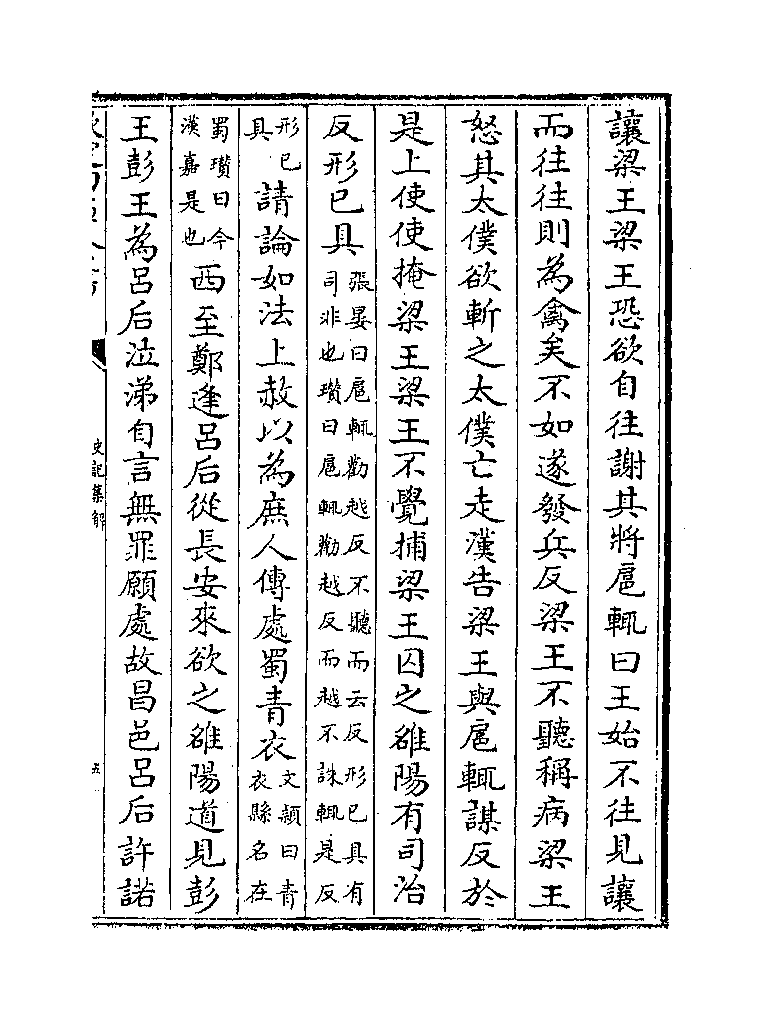 讓梁王梁王恐欲自往謝其將扈輒曰王始不往見讓
而往往則為禽矣不如遂發兵反梁王不聽稱病梁王
怒其太僕欲斬之太僕亡走漢告梁王與扈輒謀反於
是上使使掩梁王梁王不覺捕梁王囚之雒陽有司治
反形已具張晏曰扈輒勸越反不聽而云反形已具有司非也瓚曰扈輒勸越反而越不誅輒是反
形已具請論如法上赦以為庶人傳處蜀青衣文穎曰青衣縣名在
蜀瓚曰今漢嘉是也西至鄭逢呂后從長安來欲之雒陽道見彭
王彭王為呂后泣涕自言無罪願處故昌邑呂后許諾
史記集解
五